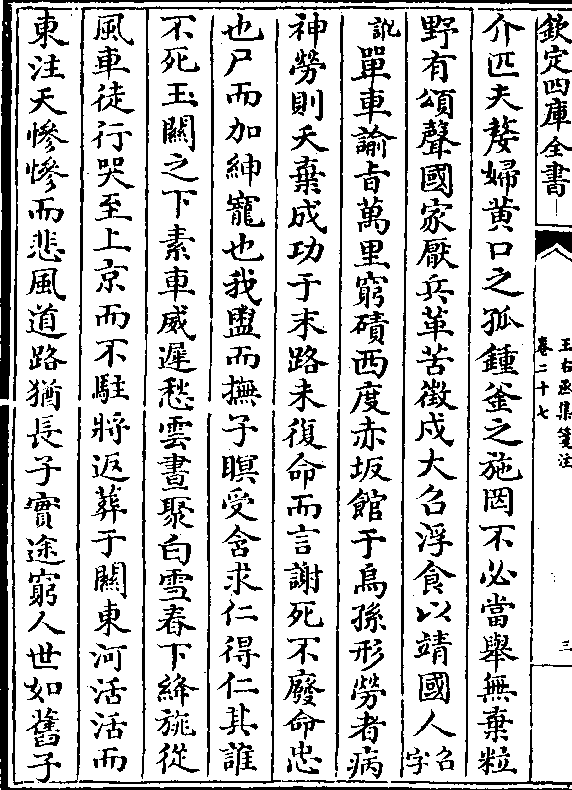 欽定四庫全書
王右丞集箋注
卷二十七
三
介匹夫嫠婦黄口之孤鍾釜之施罔不必當舉無棄粒
野有頌聲國家厭兵革苦徵戍大召浮食以靖國人召字
訛單車諭旨萬里窮磧西度赤坂館于烏孫形勞者病
神勞則夭棄成功于末路未復命而言謝死不廢命忠
也尸而加紳寵也我盥而撫子瞑受含求仁得仁其誰
不死玉關之下素車威遲愁雲晝聚白雪春下絳旐從
風車徒行哭至上京而不駐將返葬于關東河活活而
東注天慘慘而悲風道路猶長子實途窮人世如舊子